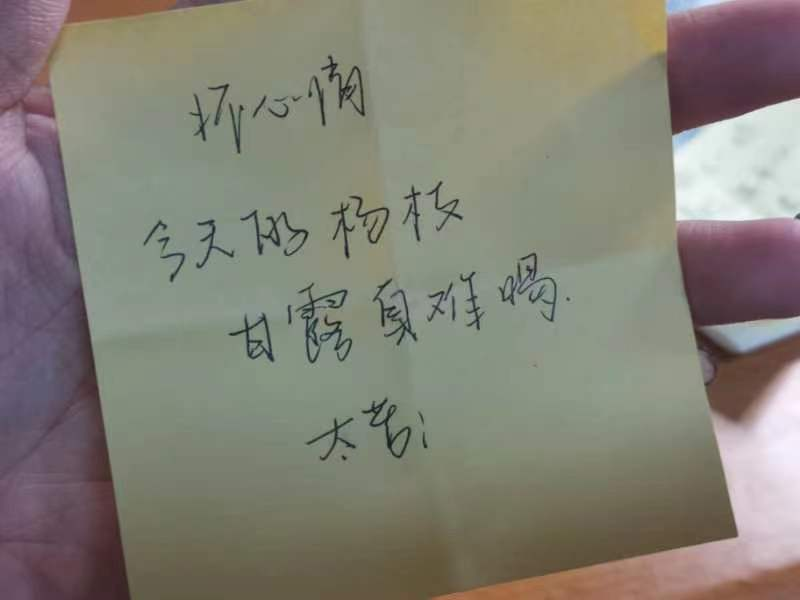 坏心情
今天的杨枝
甘露真难喝.
太苦!